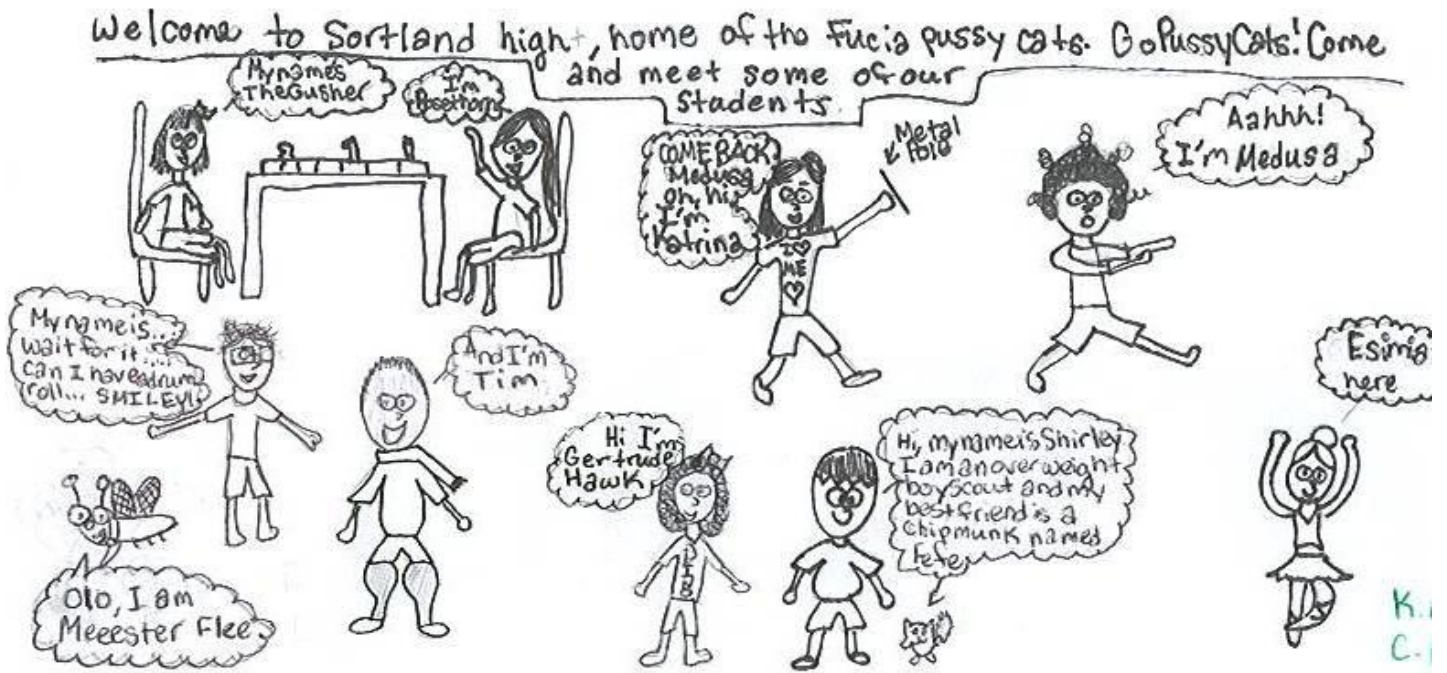 Welcome to Sortland high, home of the Fucia pussy cats. Go PussyCats! Come
and meet some of our
students.
My name's
TheGusher
I'm
Rosethorn
COME BACK
Medusa
oh, hi,
I'm
Katrina
Metal
Pole
I ♥
ME
♥
Aahhh!
I'm Medusa
My name is...
wait for it....
can I have a drum
roll... SMILEY!
And I'm
Tim
Hi I'm
Gertrude
Hawk
Hi, my name is Shirley
I am an over weight
boy scout and my
best friend is a
chipmunk named
Fefe
here
Olo, I am
Meeester Flee
K.
C.